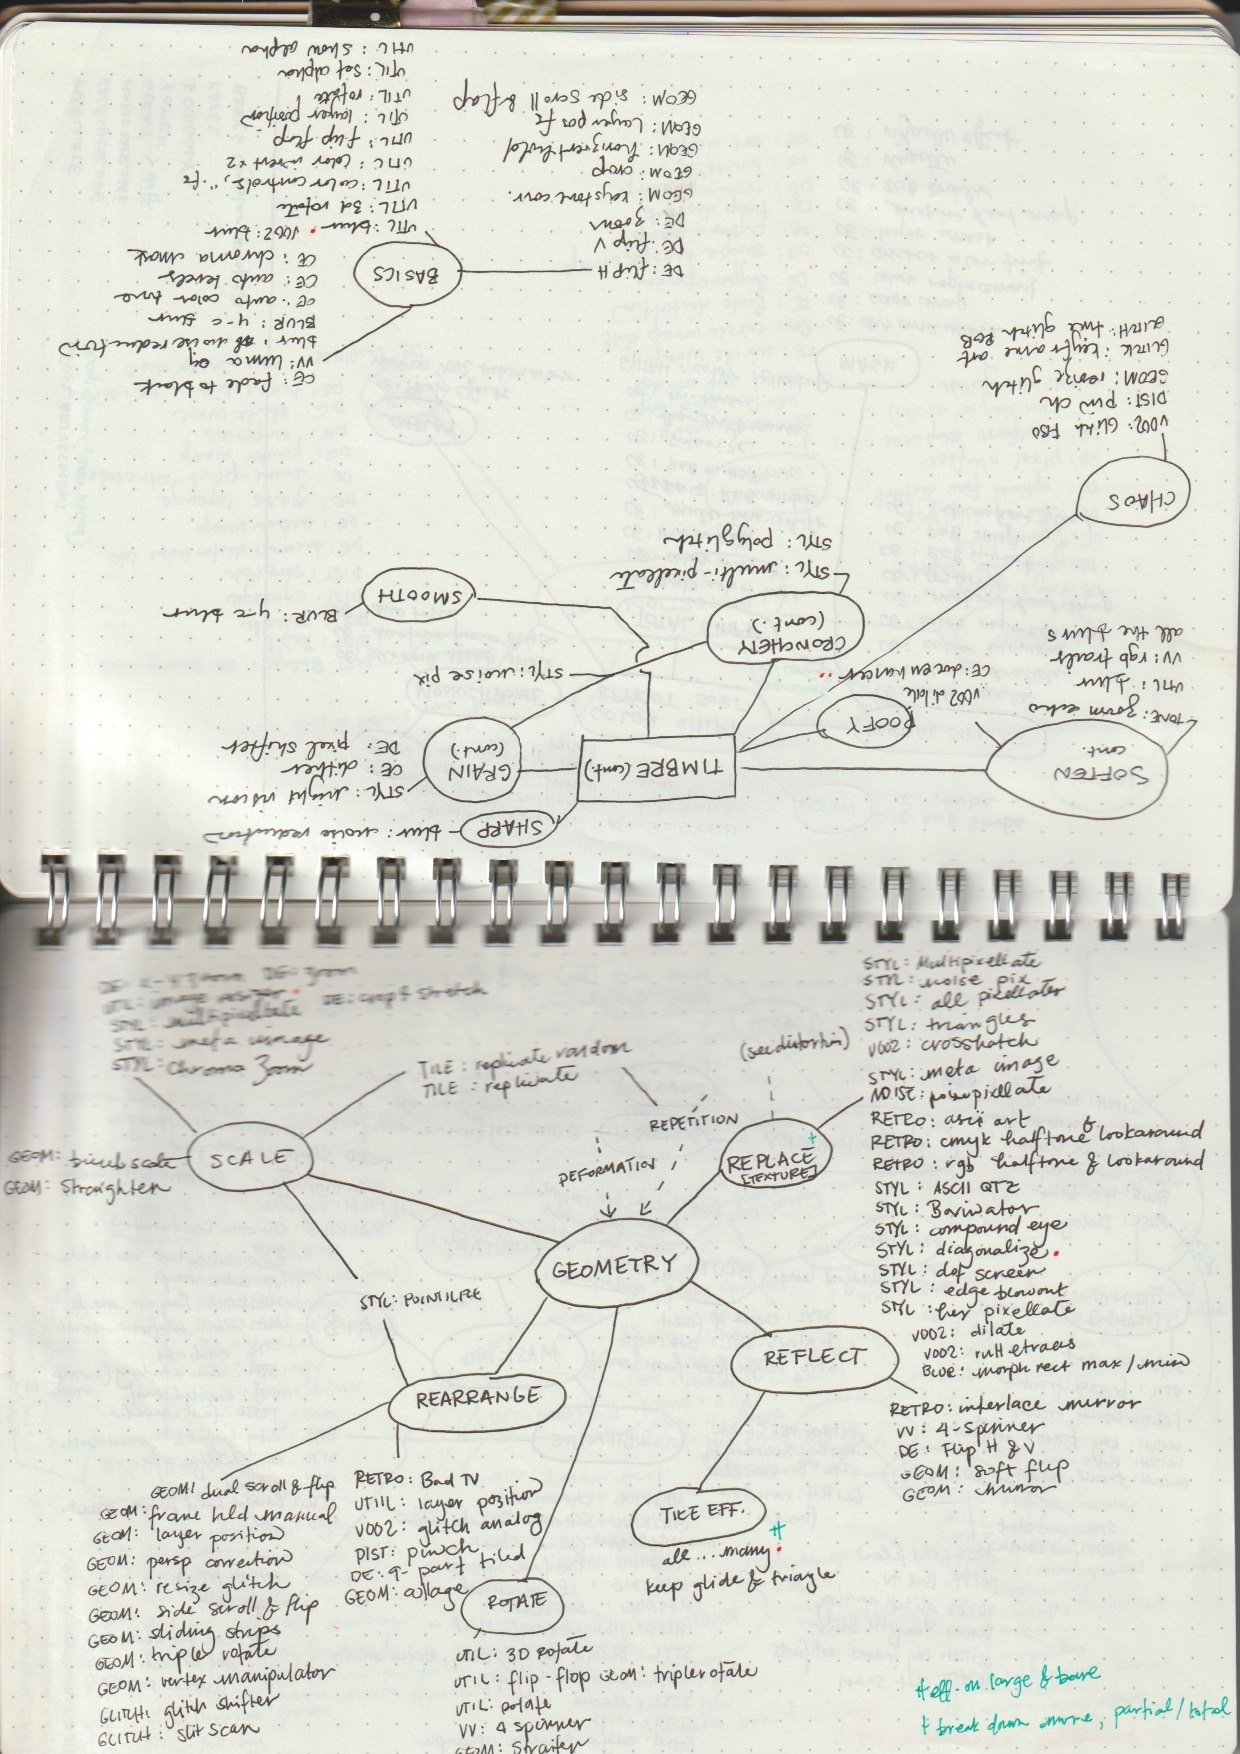 UTIL: show alpha
UTIL: set alpha
UTIL: rotate
UTIL: layer position
UTIL: flip flop
UTIL: color invert x2
UTIL: color controls, "fz
UTIL: 3d rotate
UTIL: blur · V002: blur
BASICS
CE: chroma mask
CE: auto levels
CE: auto color tone
BLUR: y-c blur
blur: noise reduction
VV: luma
CE: fade to black
GEOM: side scroll & flap
GEOM: layer pos fz
GEOM: crop
GEOM: keystone corr.
DE: zoom
DE: flip V
DE: flip H
GLITCH: time glitch RGB
GLITCH: keyframe art
GEOM: resize glitch
DIST: pinch
V002: Glitch
CHAOS
STYL: polyglitch
STYL: multi-pixellate
CRONCHEN
(cont.)
SMOOTH
BLUR: y-c blur
STYL: noise pix
all the blurs
VV: rgb trails
UTIL: blur
TONE: zoom echo
SOFTEN
cont.
CE: doc enhancer
V002 dilate
POOFY
TIMBRE (cont.)
GRAIN
(cont.)
DE: pixel shifter
CE: dither
STYL: night vision
SHARP
blur: noise reduction
DE: zoom
UTIL: image resizer
DE: crop & stretch
STYL: multipixellate
STYL: meta image
STYL: Chroma Zoom
TILE: replicate random
TILE: replicate
SCALE
GEOM: Straighten
(see distortion)
REPETITION
DEFORMATION
REPLACE
[TEXTURE]
GEOMETRY
STYL: Multipixellate
STYL: noise pix
STYL: all pixellates
STYL: triangles
V002: crosshatch
STYL: meta image
NOISE: noisepixellate
RETRO: ascii art
RETRO: cmyk halftone & lookaround
RETRO: rgb halftone & lookaround
STYL: ASCII QTZ
STYL: Bariwator
STYL: compound eye
STYL: diagonalize
STYL: dot screen
STYL: edge blowout
STYL: hex pixellate
V002: dilate
V002: rutt etraas
BLUR: morph rect max/min
STYL: POINTILLIZE
REARRANGE
REFLECT
RETRO: interlace mirror
VV: 4-Spinner
DE: Flip H & V
GEOM: soft flip
GEOM: mirror
GEOM: dual scroll & flip
GEOM: frame hld manual
GEOM: layer position
GEOM: persp correction
GEOM: resize glitch
GEOM: side scroll & flip
GEOM: sliding strips
GEOM: triple rotate
GEOM: vertex manipulator
GLITCH: glitch shifter
GLITCH: slit scan
RETRO: Bad TV
UTIL: layer position
V002: glitch analog
DIST: pinch
DE: 9-part tiled
GEOM: collage
ROTATE
UTIL: 3D rotate
UTIL: flip-flop GEOM: triple rotate
UTIL: rotate
VV: 4 spinner
GEOM: Straiten
TILE EFF.
all...many
keep glide & triangle
eff-on large & bare
+ break down more, partial/total